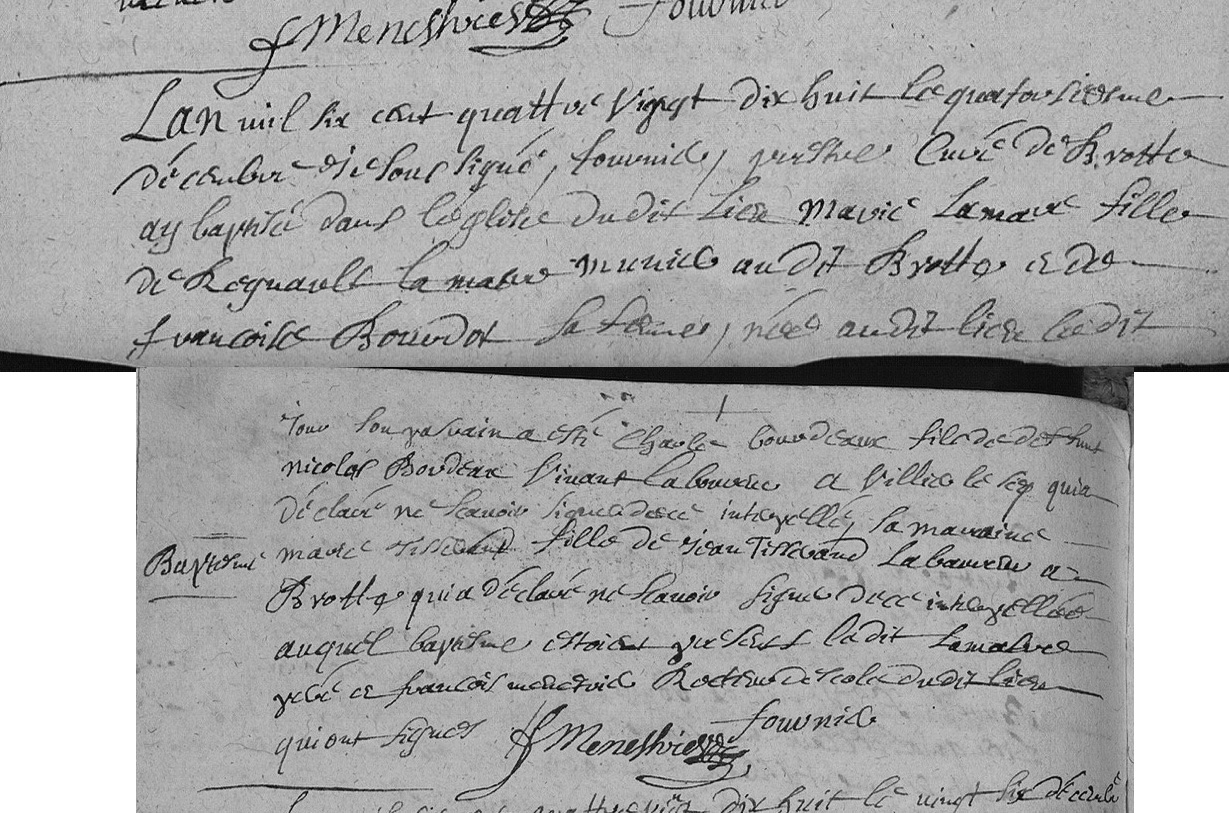 f Menestrier fournier
Lan mil six cent quattre vingt dix huit le quatorsiesme
décembre Je soussigné, fournier, prestre Curé de Brotte
ay baptisé dans léglise dudit Lieu Marie Lamare fille
de Regnault la mare munier audit Brotte et de
francoise Bourdot sa femme, née audit lieu ledit
Jour son parain a esté Charle bourdeaux fils de deffunt
nicolas Bordeau Vivant laboureur a Villie le sep qui a
déclaré ne scavoir signer de ce interpellé, sa maraine
Bapteme
marie Tisserand fille de Jean Tisserand Laboureur a
Brotte qui a déclaré ne scavoir signer de ce interpellée
auquel baptesme estoient presents ledit Lamare
pere et francois menetrier Recteur descole dudit lieu
qui ont signes f Menestrier fournier
dix huit le vingt six décembre